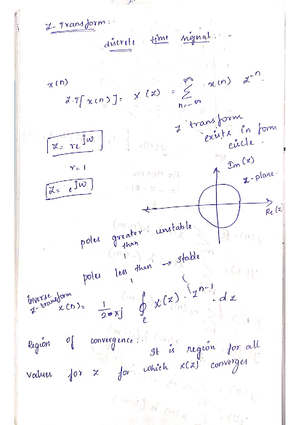 Z-Transform:
discrete time signal:-
x(n)
Z.T[x(n)] = X(Z) = ∑ x(n) Z^-n
n=-∞
∞
Z = re^jω
Z transform
exists in form
circle.
r=1
Z = e^jω
Im(z)
Z-plane
Re(z)
poles greater than 1 : unstable
poles less than 1 → stable
Inverse
Z-transform
x(n) = 1/2πj ∮c X(Z) . Z^n-1 . dz
Region of convergence: It is region for all
values for Z for which X(Z) converges